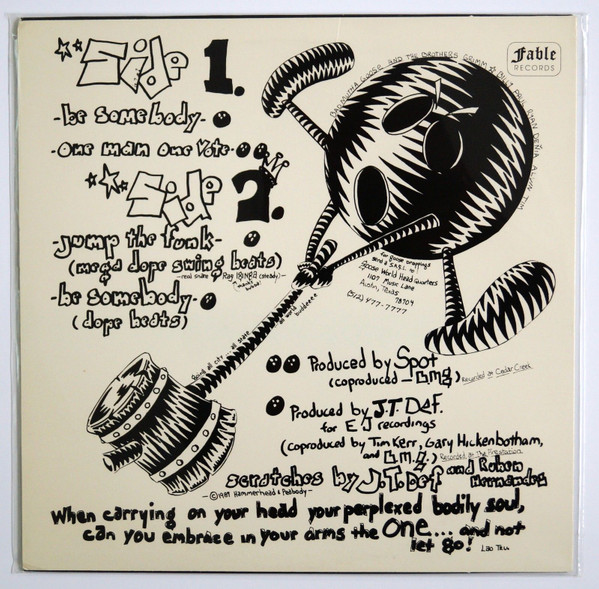 Side 1.
Fable
RECORDS
- be somebody -
- one man one vote -
Side 2.
- jump the funk -
(mega dope swing beats)
&
- be somebody -
(dope beats)
for goose droppings
send a S.A.S.E. to
Goose World Headquarters
1107 Music Lane
Austin, Texas
78704
(512) 477-7777
Produced by Spot
(coproduced - bmg) Recorded at Cedar Creek
Produced by J.T. Def.
for E J recordings
(coproduced by Tim Kerr, Gary Hickenbotham,
and b.m.g.) Recorded at The Firestation
scratches by J.T. Def and Ruben
Hernandez
- ©1989 Hammerhead & Peabody -
When carrying on your head your perplexed bodily soul,
can you embrace in your arms the One... and not
let go! Lao Tsu